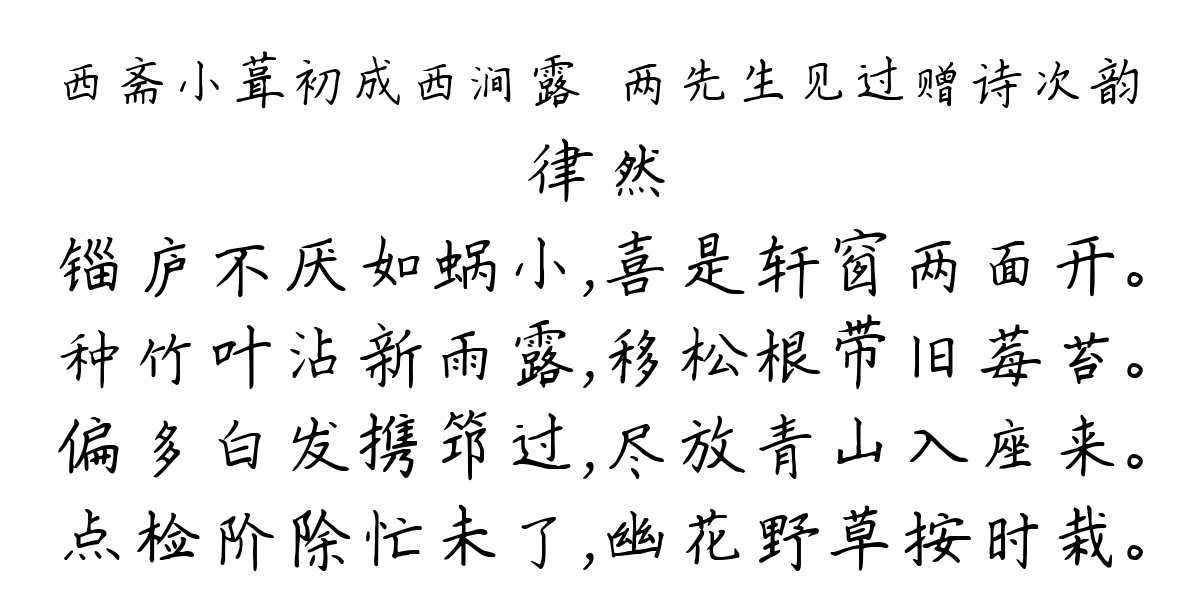 西斋小葺初成西涧露 两先生见过赠诗次韵
律然
锱庐不厌如蜗小,喜是轩窗两面开。
种竹叶沾新雨露,移松根带旧莓苔。
偏多白发携筇过,尽放青山入座来。
点检阶除忙未了,幽花野草按时栽。